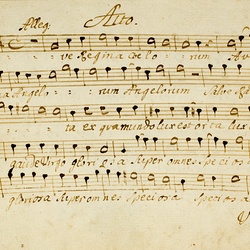 Alleg: Alto.
ve Regina Coelo rum Av
Angelo rum Angelorum Salve R
ta ex qua mundo lux est orta lux
gaude Virgo glori o sa Super omnes specios
gloriosa Super omnes speciosa specios a